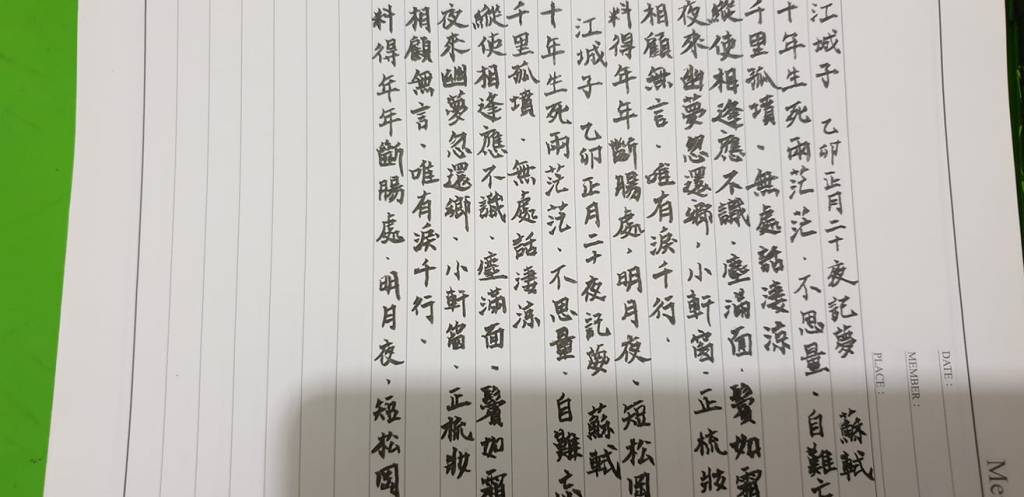 Me
DATE:
MEMBER:
PLACE:
江城子 乙卯正月二十夜記夢 蘇軾
十年生死兩茫茫、不思量、自難
千里孤墳、無處話淒涼
縱使相逢應不識、塵滿面、鬢如霜
夜來幽夢忽還鄉,小軒窗、正梳妝
相顧無言、唯有淚千行、
料得年年斷腸處、明月夜、短松岡
江城子 乙卯正月二十夜記夢 蘇軾
十年生死兩茫茫、不思量、自難忘
千里孤墳、無處話淒涼
縱使相逢應不識、塵滿面、鬢如霜
夜來幽夢忽還鄉、小軒窗、正梳妝
相顧無言、唯有淚千行、
料得年年斷腸處、明月夜、短松岡